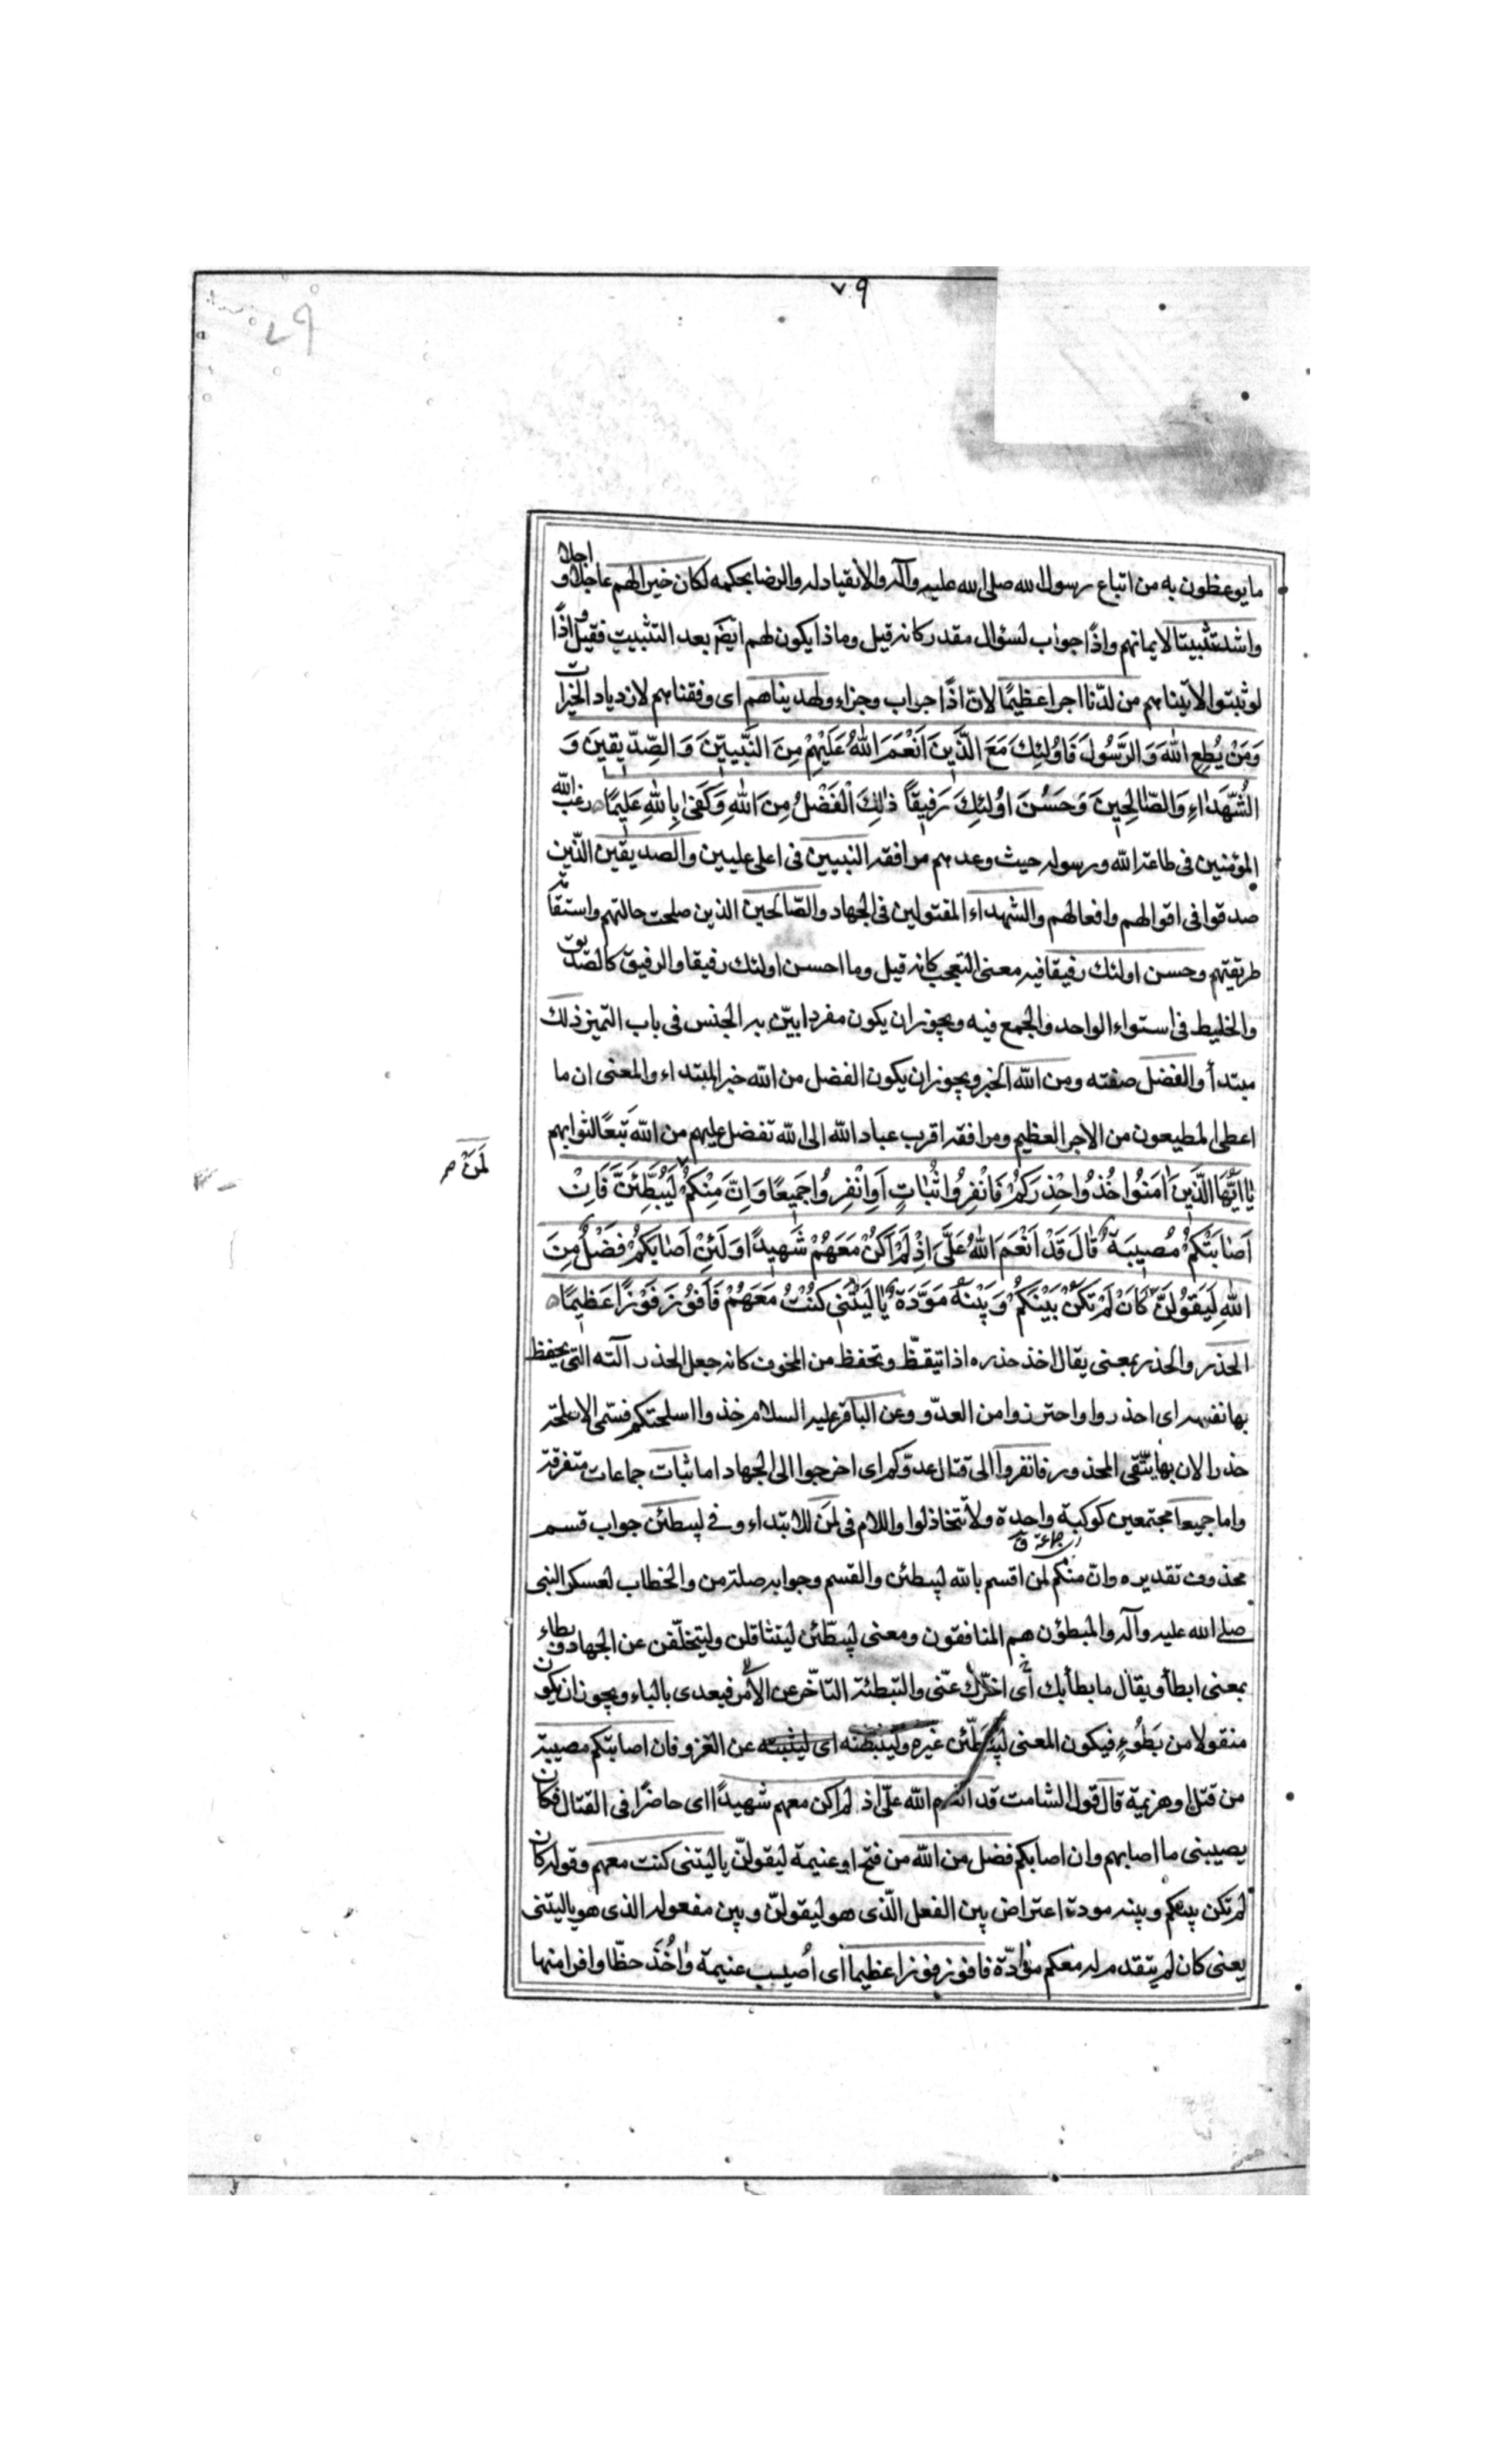 ٧٩
ما يوعظون به من اتباع رسول الله صلى الله عليه وآله والانقياد له والرضا بحكمه لكان خيرا لهم عاجلا و اجلا
واشد تثبيتا لايمانهم واذًا جواب لسؤال مقدر كانه قيل وماذا يكون لهم ايضًا بعد التثبيت فقيل واذًا
لو ثبتوا لاتيناهم من لدّنا اجرا عظيمًا لانّ اذًا جواب وجزاء ولهديناهم اى وفقناهم لازدياد الخيرات
وَمَنْ يُطِعِ اللهَ وَالرَّسُولَ فَاُولٰئِكَ مَعَ الَّذِينَ اَنْعَمَ اللهُ عَلَيْهِمْ مِنَ النَّبِيّينَ وَالصِّدّيقينَ وَ
الشُّهَدَاءِ وَالصّالِحينَ وَحَسُنَ اوُلٰئِكَ رَفيقاً ذلِكَ الْفَضْلُ مِنَ اللهِ وَكَفىٰ بِاللهِ عَليمًا رغب الله
المؤمنين فى طاعة الله ورسوله حيث وعدهم مرافقة النبيين فى اعلى عليين والصديقين الذّين
صدقوا فى اقوالهم وافعالهم والشهداء المقتولين فى الجهاد والصّالحين الذين صلحت حالتهم واستقامت
طريقتهم وحسن اولئك رفيقا فيه معنى التعجب كانه قيل وما احسن اولئك رفيقا والرفيق كالصّديق
والخليط فى استواء الواحد والجمع فيه ويجوز ان يكون مفردا بيّن به الجنس فى باب التّميز ذلك
مبتدأ والفضل صفته ومن الله الخبر ويجوز ان يكون الفضل من الله خبر المبتداء والمعنى ان ما
اعطى المطيعون من الاجر العظيم ومرافقة اقرب عباد الله الى الله تفضل عليهم من الله تبعًا لثوابهم
يٰا اَيُّهَا الَّذِينَ اٰمَنُوا خُذُوا حِذْرَكُمْ فَانْفِرُوا ثُبٰاتٍ اَوِ انْفِرُوا جَميعًا وَاِنَّ مِنْكُمْ لَيُبَطِّئَنَّ فَاِنْ
لَمَنْ صح
اَصٰابَتْكُمْ مُصيبَةٌ قٰالَ قَدْ اَنْعَمَ اللهُ عَلَىَّ اِذْ لَمْ اَكُنْ مَعَهُمْ شَهيدًا وَلَئِنْ اَصٰابَكُمْ فَضْلٌ مِنَ
اللهِ لَيَقُولَنَّ كَاَنْ لَمْ تَكُنْ بَيْنَكُمْ وَبَيْنَهُ مَوَدَّةٌ يٰا لَيْتَنى كُنْتُ مَعَهُمْ فَاَفُوزَ فَوْزًا عَظيمًا
الحذر والحذر بمعنى يقال اخذ حذره اذا تيقظّ وتحفظ من المخوف كانه جعل الحذر آلته التى يحفظ
بها نفسه اى احذروا واحترزوا من العدّو وعن الباقر عليه السلام خذوا اسلحتكم فسمّى الاسلحة
حذرا لان بها يتّقى المحذور فانفروا الى قتال عدوّكم اى اخرجوا الى الجهاد اما ثبات جماعات متفرقة
واما جميعا مجتمعين كوكبة واحدة ولا تتخاذلوا واللام فى لمَن للابتداء وفى ليبطئن جواب قسم
اى جماعة ق
محذوف تقديره وانّ منكم لمن اقسم بالله ليبطئن والقسم وجوابه صلة من والخطاب لعسكر النبى
صلى الله عليه وآله والمبطؤن هم المنافقون ومعنى ليبطّئن ليتثاقلن وليتخلّفن عن الجهاد وبطاء
بمعنى ابطأ ويقال ما بطأ بك أى اخّرك عنّى والتبطئة التاخّر عن الأمر فيعدى بالباء ويجوز ان يكون
منقولا من بَطُوءٍ فيكون المعنى ليبَطّئن غيره عن الغزو فان اصابتكم مصيبة
من قتل او هزيمة قال قول الشامت قد انعم الله علىّ اذ لم اكن معهم شهيدًا اى حاضرًا فى القتال فكان
يصيبنى ما اصابهم وان اصابكم فضل من الله من فتح او غنيمة ليقولنّ ياليتنى كنت معهم وقوله كان
لم تكن بينكم وبينه مودة اعتراض بين الفعل الّذى هو ليقولنّ وبين مفعوله الذى هو ياليتنى
يعنى كان لم يتقدم له معكم موّادّة فافوز فوزا عظيما اى اُصيب غنيمة واٰخُذَ حظّا وافرا منها